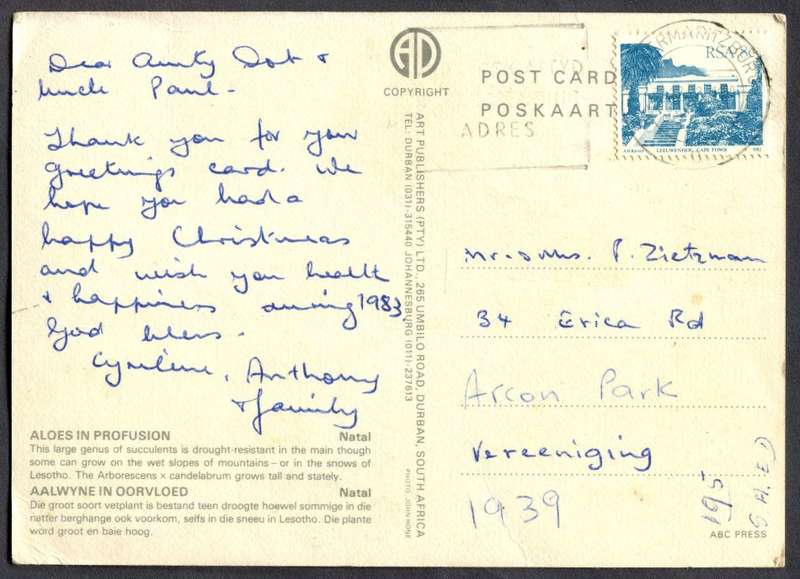 Dear Aunty Dot &
Uncle Paul -
Thank you for your
greetings card. We
hope you had a
happy Christmas
and wish you health
& happiness during 1983.
God bless.
Anthony
& family
ALOES IN PROFUSION Natal
This large genus of succulents is drought-resistant in the main though
some can grow on the wet slopes of mountains – or in the snows of
Lesotho. The Arborescens × candelabrum grows tall and stately.
AALWYNE IN OORVLOED Natal
Die groot soort vetplant is bestand teen droogte hoewel sommige in die
natter berghange ook voorkom, selfs in die sneeu in Lesotho. Die plante
word groot en baie hoog.
AD
COPYRIGHT
ART PUBLISHERS (PTY) LTD., 265 UMBILO ROAD, DURBAN, SOUTH AFRICA
TEL: DURBAN (031)-315440 JOHANNESBURG (011)-237613
PHOTO: JOHN HONE
POST CARD
POSKAART
ADRES
RSA
LEEUWENHOF, CAPE TOWN
Mr. & Mrs. P. Zietzman
34 Erica Rd
Arcon Park
Vereeniging
1939
ABC PRESS